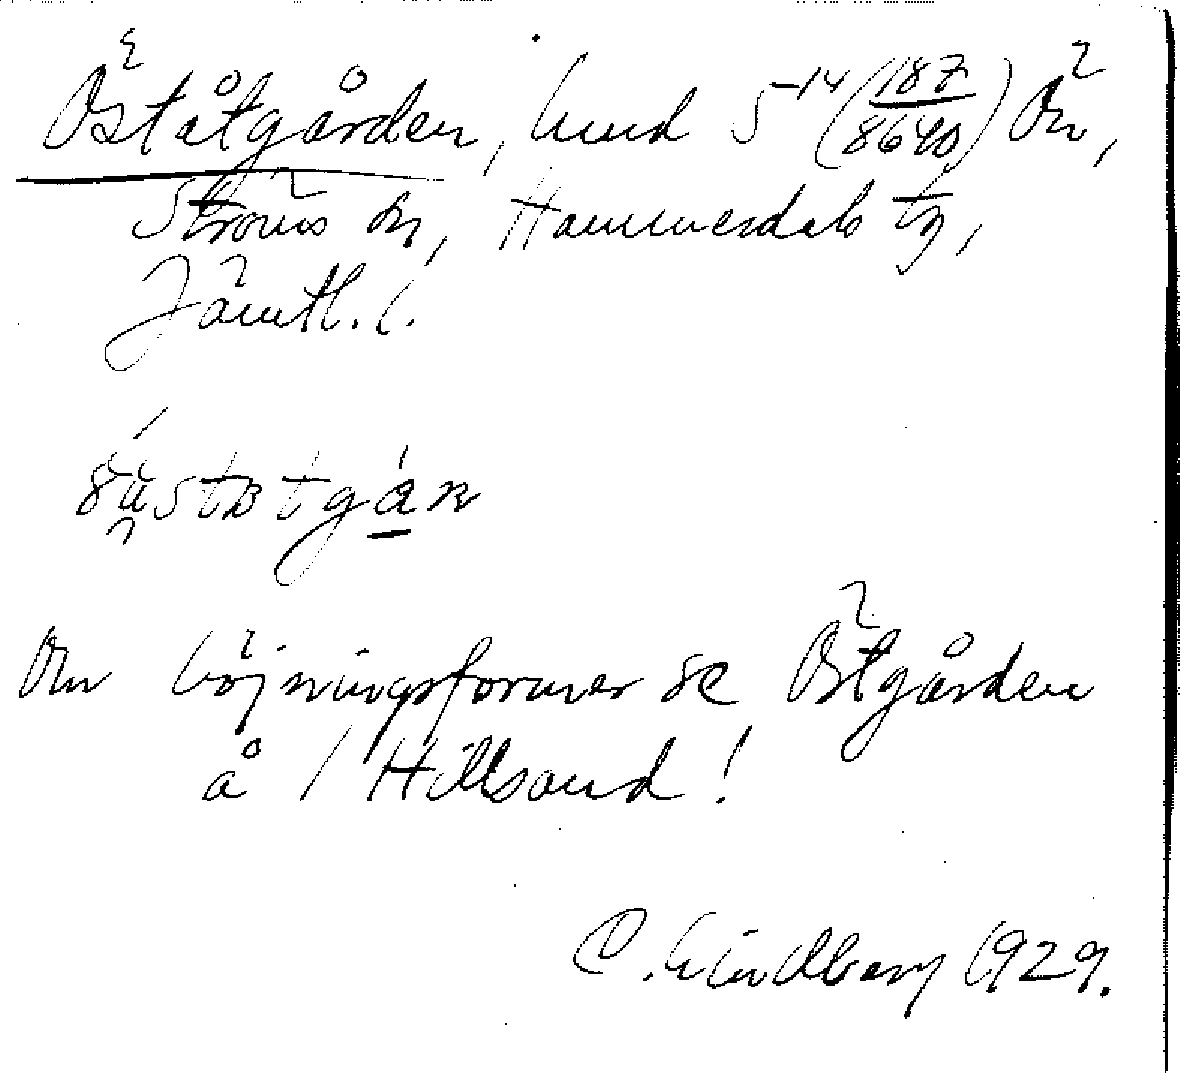 Öståtgården, Lund 5-14 (187/8640) Ör,
Ströms sn, Hammerdals tg,
Jämtl. l.
Om böjningsformer se Östgården
å 1 Hillsand!
C. Lindberg 1929.